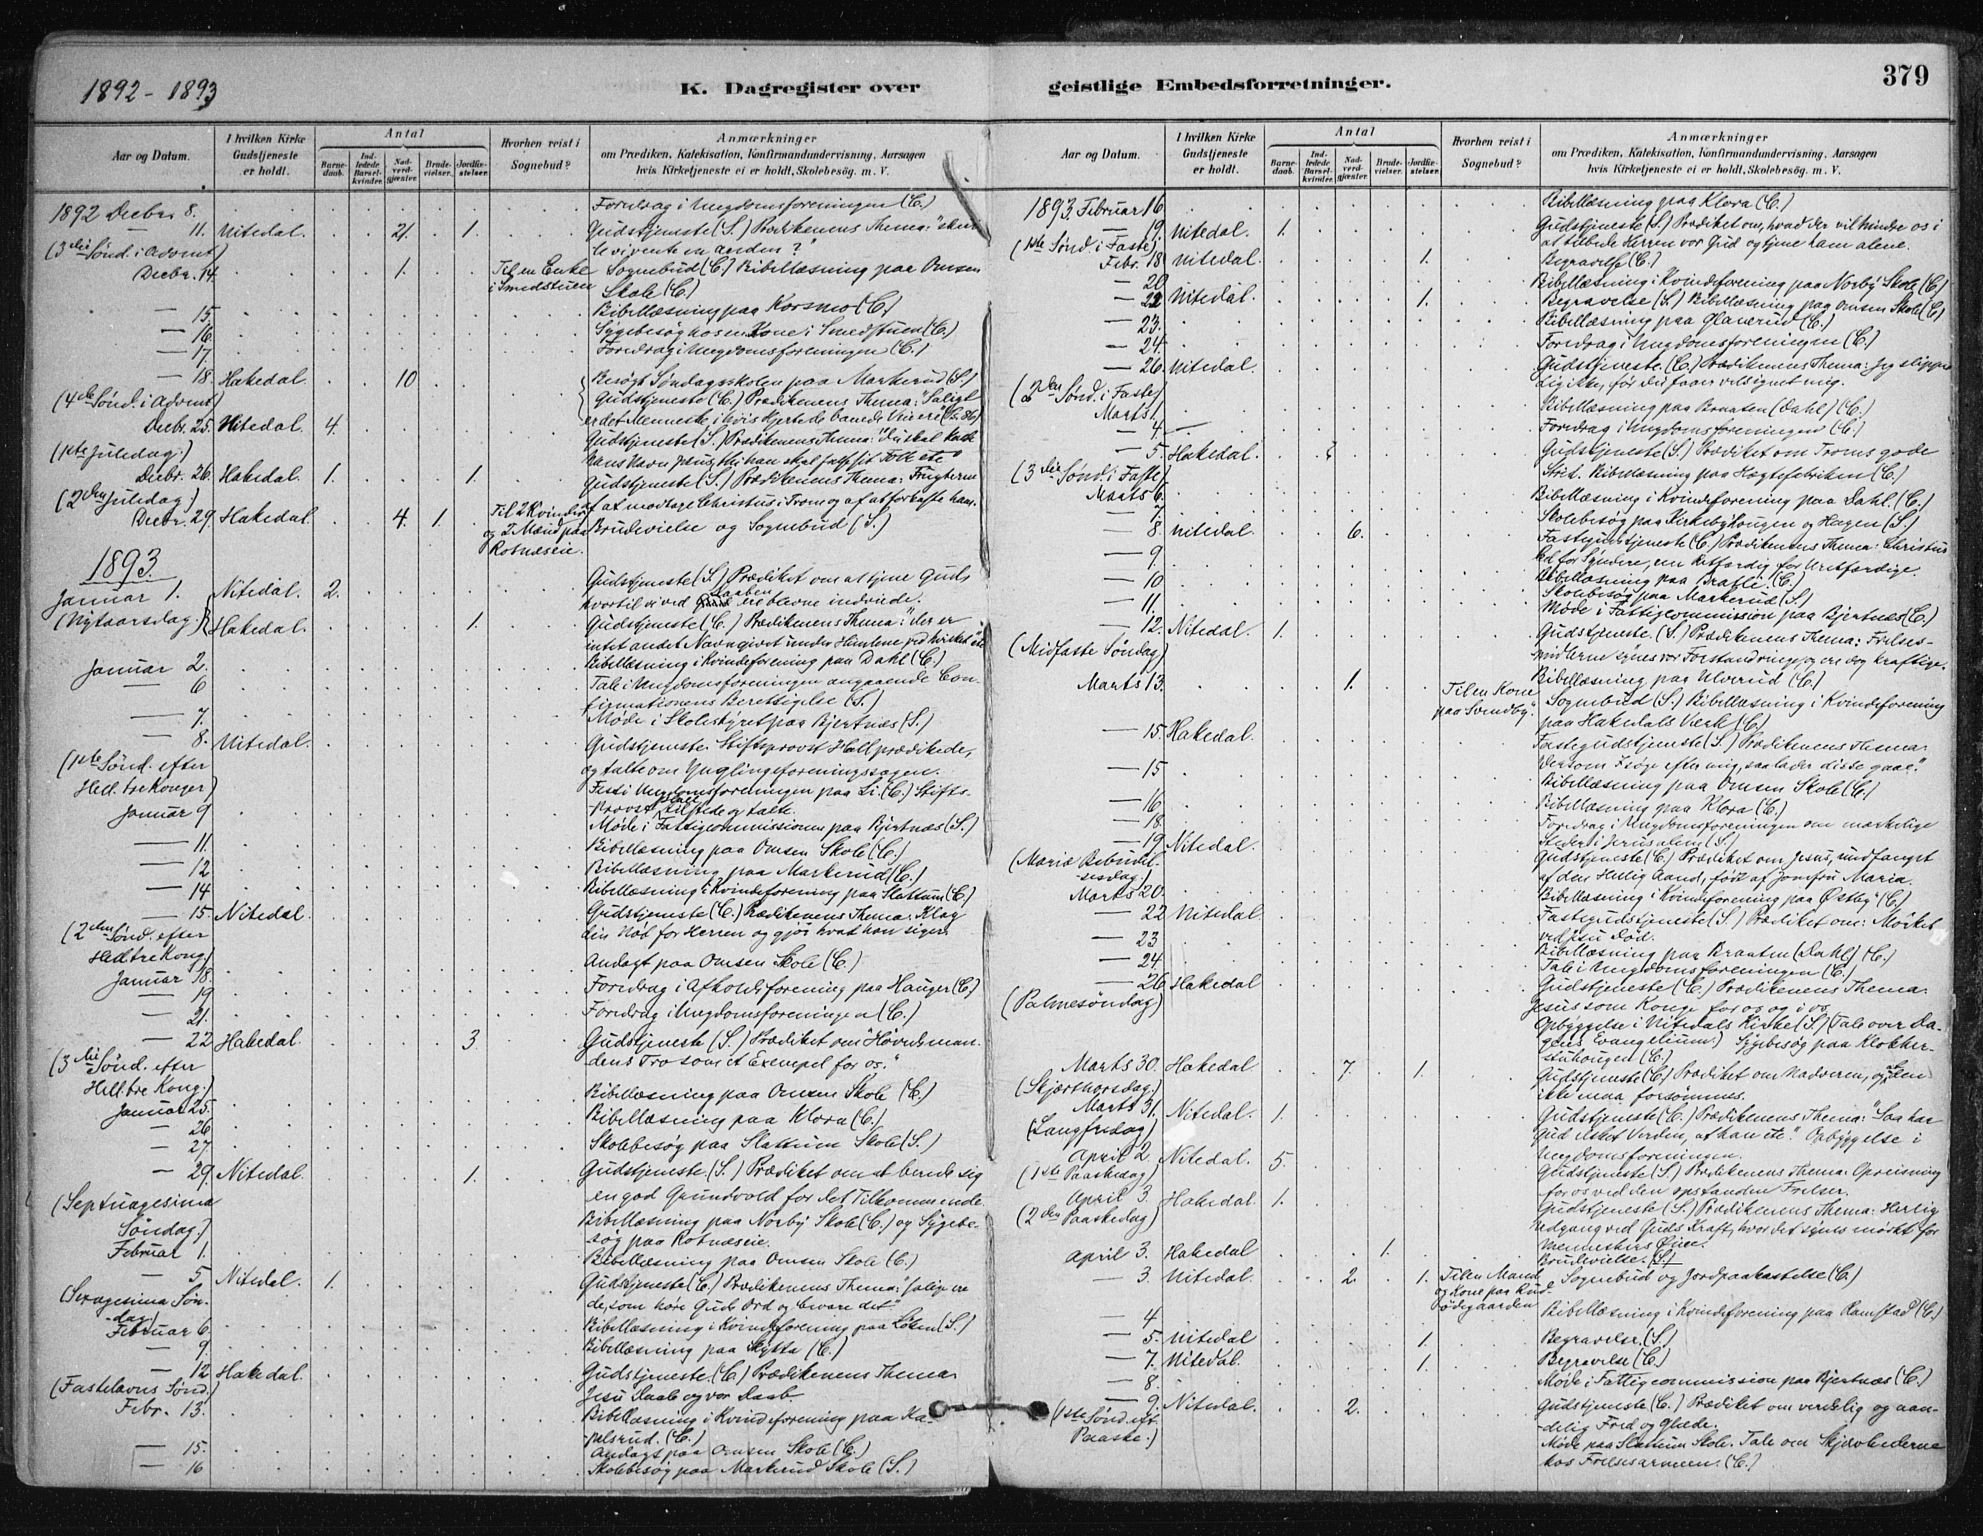 1892 - 1893
K. Dagregister over
geistlige Embedsforretninger.
379
Aar og Datum.
I hvilken Kirke Gudstjeneste er holdt.
Antal
Barnedaab.
Indledede Barselkvinder.
Nadverdgjæster.
Brudevielser.
Jordfæstelser.
Hvorhen reist i Sognebud?
Anmærkninger
om Prædiken, Katekisation, Konfirmandundervisning, Aarsagen
hvis Kirketjeneste ei er holdt, Skolebesøg. m. V.
1892 Decbr 8. Foredrag i Ungdomsforeningen (C.)
— 11. Nitedal. 21. 1. Gudstjeneste (S.) Prædikenens Thema: "skulle
(3die Sønd. i Advent) vi vente en anden?"
Decbr. 14. 1. Til en Enke i Smedstuen Sognebud (C.) Bibellæsning paa Omsen
Skole (C.)
— 15. Bibellæsning paa Korsmo (C.)
— 16. Sygebesøg hos en Kone i Smedstuen (C.)
— 17. Foredrag i Ungdomsforeningen (C.)
— 18. Hakedal. 10 Besøgt Søndagsskolen paa Markerud (S.)
(4de Sønd. i Advent) Gudstjeneste (C.) Prædikenens Thema: Saligt
er det Menneske i hvis Hjerte de banede Veie ere (Ps. 84)
Decbr. 25. Nitedal. 4. Gudstjeneste (S.) Prædikenens Thema: Du skal kalde
(1ste Juledag.) hans Navn Jesus thi han skal frelse sit Folk etc"
Decbr. 26. Hakedal. 1. 1. Gudstjeneste (S.) Prædikenens Thema: Frugterne
(2den Juledag.) af at modtage Christus i Troen og af at forkaste ham.
Decbr. 29. Hakedal. 4. 1. Til 2 Kvinder og 2 Mænd paa Rotnæseie. Brudevielse og Sognebud (S.)
1893.
Januar 1. Nitedal. 2. Gudstjeneste (S.) Prædiket om at tjene Gud
(Nytaarsdag) hvortil vi ved Daaben ere blevne indviede.
Hakedal. 1. Gudstjeneste (C.) Prædikenens Thema: "der er
intet andet Navn givet under Himlene ved hvilket etc
Januar 2. Bibellæsning i Kvindeforening paa Dahl (C.)
— 6 Tale i Ungdomsforeningen angaaende Confirmationens Berettigelse (S.)
— 7. Møde i Skolestyret paa Bjertnæs (S.)
— 8. Nitedal. Gudstjeneste. Stiftsprovst Hall prædikede,
(1ste Sønd. efter og talte om Ynglingeforeningssagen.
Hell. tre Konger) Fest i Ungdomsforeningen paa Li. (C.) Stifts-
Januar 9 provst Hall tilstede og talte.
Møde i Fattigcommissionen paa Bjertnæs (S.)
— 11. Bibellæsning paa Omsen Skole (C.)
— 12 Bibellæsning paa Markerud (C.)
— 14 Bibellæsning i Kvindeforening paa Slattum (C.)
— 15. Nitedal. Gudstjeneste (C.) Prædikenens Thema: Klag
(2den Sønd. efter din Nød for Herren og gjør hvad han siger.
Hell. tre Kong.)
Januar 18. Andagt paa Omsen Skole (C.)
— 19 Foredrag i Afholdsforening paa Hauger (C.)
— 21. Foredrag i Ungdomsforeningen (C.)
— 22 Hakedal. 3. Gudstjeneste (S.) Prædiket om "Høvedsman-
(3die Sønd. efter dens Tro som et Exempel for os."
Hell. tre Kong.)
Januar 25. Bibellæsning paa Omsen Skole (C.)
— 26 Bibellæsning paa Klora (C.)
— 27. Skolebesøg paa Slattum Skole (S.)
— 29. Nitedal. 1. Gudstjeneste (S.) Prædiket om at berede sig
(Septuagesima en god Grundvold for det Tilkommende.
Søndag.) Bibellæsning paa Norby Skole (C.) og Sygebe-
søg paa Rotnæseie.
Februar 1. Bibellæsning paa Omsen Skole (C.)
— 5 Nitedal. 1. Gudstjeneste (C.) Prædikenens Thema: "salige ere
(Sexagesima Søn- de, som høre Guds Ord og bevare det."
dag)
Februar 6. Bibellæsning i Kvindeforening paa Løken (S.)
— 9. Bibellæsning paa Skytta (C.)
— 12 Hakedal. Gudstjeneste (C.) Prædikenens Thema
(Fastelavns Sønd.) Jesu Daab og vor Daab.
Febr. 13. Bibellæsning i Kvindeforening paa Ka-
pelsrud. (C.)
— 15. Andagt paa Omsen Skole (C.)
— 16 Skolebesøg paa Markerud Skole (S.)
Aar og Datum.
I hvilken Kirke Gudstjeneste er holdt.
Antal
Barnedaab.
Indledede Barselkvinder.
Nadverdgjæster.
Brudevielser.
Jordfæstelser.
Hvorhen reist i Sognebud?
Anmærkninger
om Prædiken, Katekisation, Konfirmandundervisning, Aarsagen
hvis Kirketjeneste ei er holdt, Skolebesøg. m. V.
1893. Februar 16 Bibellæsning paa Klora (C.)
— 19. Nitedal. 1. Gudstjeneste (S.) Prædiket om, hvad der vil hindre os i
(1ste Sønd. i Faste) at tilbede Herren vor Gud og tjene ham alene.
Febr. 18 Nitedal. 1. Begravelse (C.)
— 20 Bibellæsning i Kvindeforening paa Norby Skole (C.)
— 22 Nitedal. 1. Begravelse (S.) Bibellæsning paa Omsen Skole (C.)
— 23. Bibellæsning paa Glaserud (C.)
— 24. Foredrag i Ungdomsforeningen (C.)
— 26. Nitedal. Gudstjeneste. (C.) Prædikenens Thema: Jeg slipper
(2den Sønd. i Faste) dig ikke, før du faar velsignet mig.
Marts 1. Bibellæsning paa Braaten (Dahl) (C.)
— 4. Foredrag i Ungdomsforeningen (C.)
— 5. Hakedal. Gudstjeneste (S.) Prædiket om Troens gode
(3die Sønd. i Faste) Strid. Bibellæsning paa Hægtefabriken (C.)
Marts 6. Bibellæsning i Kvindeforening paa Dahl. (C.)
— 7. Skolebesøg paa Kirkebyhaugen og Hagen (S.)
— 8. Nitedal. 6. Fastegudstjeneste (C.) Prædikenens Thema: Christus
— 9. led for Syndere, en Retfærdig for Uretfærdige.
— 10 Bibellæsning paa Bratli. (C.)
— 11. Skolebesøg paa Markerud (S.)
Møde i Fattigcommission paa Bjertnæs (C.)
— 12. Nitedal. 1. Gudstjeneste. (S.) Prædikenens Thema: Frelses-
(Midfaste Søndag) midlerne synes vor Forstand ringe og ere dog kraftige.
Bibellæsning paa Ulverud (C.)
Marts 13. 1. Til en Kone paa Svendby. Sognebud (S.) Bibellæsning i Kvindeforening
paa Hakedals Værk (C.)
— 15. Hakedal. Fastegudstjeneste (S.) Prædikenens Thema:
Dersom I søge efter mig, saa lader disse gaae."
— 15 Bibellæsning paa Omsen Skole (C.)
— 16 Bibellæsning paa Klora (C.)
— 18. Foredrag i Ungdomsforeningen om mærkelige
Steder i Jerusalem (S.)
— 19 Nitedal. Gudstjeneste (C.) Prædiket om Jesus, undfanget
(Mariæ Bebudel- af den Hellig Aand, født af Jomfru Maria.
sesdag.)
Marts 20. Bibellæsning i Kvindeforening paa Østby" (C.)
— 22 Nitedal. Fastegudstjeneste (S.) Prædiket om: Mørket
ved Jesu Død.
— 23 Bibellæsning paa Braaten (Dahl) (C.)
— 24 Tale i Ungdomsforeningen (C.)
— 26 Hakedal Gudstjeneste (C.) Prædikenens Thema:
(Palmesøndag) Jesus som Konge for os og i os
Opbyggelse i Nitedals Kirke (S.) (Tale over Da-
gens Evangelium.) Sygebesøg paa Klokker-
stuhaugen (C.)
Marts 30. Hakedal 7. 1. Gudstjeneste (C.) Prædiket om Nadveren, og at den
(Skjærthorsdag.) ikke maa forsømmes.
Marts 31. Nitedal. 1. Gudstjeneste (C.) Prædikenens Thema: "Saa har
(Langfredag) Gud elsket Verden, at han etc". Opbyggelse i
Ungdomsforeningen.
April 2. Nitedal. 5. Gudstjeneste (S.) Prædikenens Thema: Opreisning
(1ste Paaskedag) for os ved den opstandne Frelser.
April 3. Hakedal 1. Gudstjeneste (S.) Prædikenens Thema: Herlig
(2den Paaskedag) Udgang ved Guds Kraft, hvor det synes mørkt for
Menneskers Øine.
April 3. Hakedal 1. Brudevielse. (S.)
— 3. Nitedal 2. 1. Til en Mand og Kone paa Rud-ødegaarden Sognebud og Jordpaakastelse (C.)
— 4 Bibellæsning i Kvindeforening paa Ramstad (C.)
— 5. Nitedal 1. Begravelse. (S.)
— 7. Nitedal. 1. Begravelse (C.)
— 8. Møde i Fattigcommission paa Bjertnæs (C.)
— 9. Nitedal. 2. Gudstjeneste (C.) Prædiket om verdslig og aan-
(1ste Sønd. eft. delig Fred og Glæde.
Paaske.) Møde paa Slattum Skole. Tale om Skjævhederne
hos Frelsesarmeen. (C.)